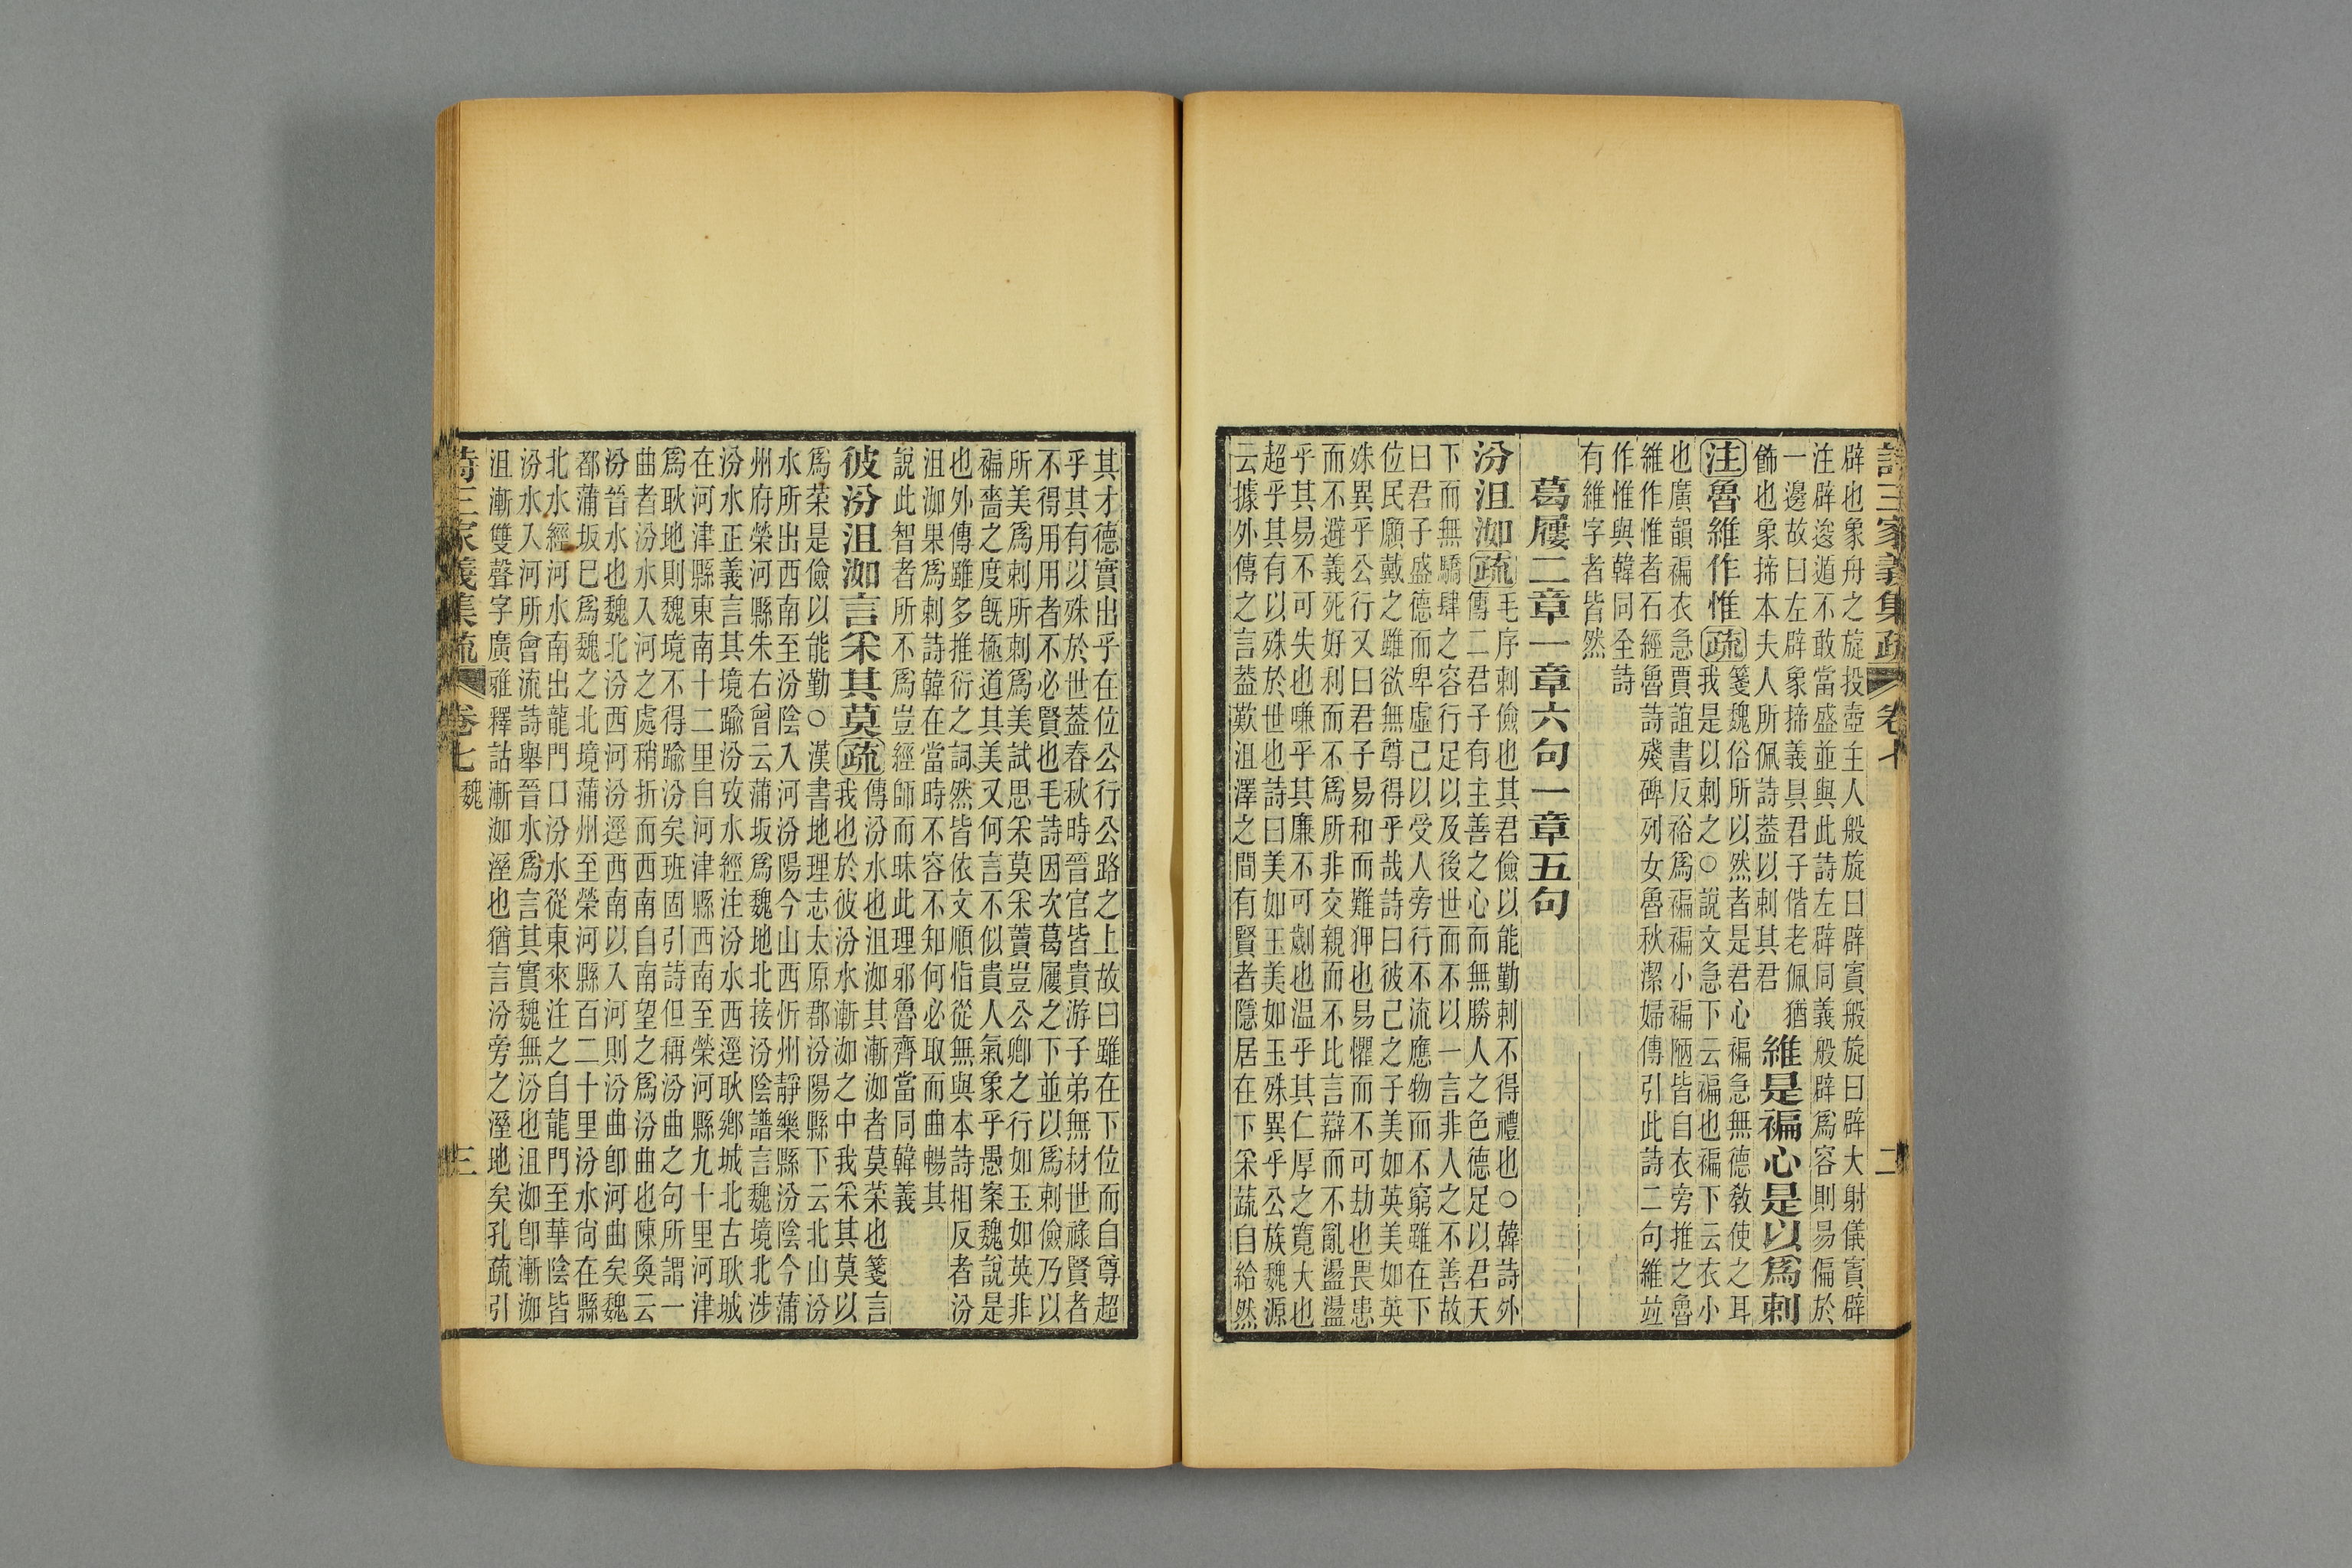 詩三家義集疏 卷七 二
辟也象舟之旋投壺主人般旋曰辟賓般旋曰辟大射儀賓辟
注辟逡遁不敢當盛並與此詩左辟同義般辟爲容則易偏於
一邊故曰左辟象揥義具君子偕老佩猶
飾也象揥本夫人所佩詩葢以刺其君
維是褊心是以爲刺
注魯維作惟疏
箋魏俗所以然者是君心褊急無德敎使之耳
我是以刺之○說文急下云褊也褊下云衣小
也廣韻褊衣急賈誼書反裕爲褊褊小褊陋皆自衣旁推之魯
維作惟者石經魯詩殘碑列女魯秋潔婦傳引此詩二句維並
作惟與韓同全詩
有維字者皆然
葛屨二章一章六句一章五句
汾沮洳疏
毛序刺儉也其君儉以能勤刺不得禮也○韓詩外
傳二君子有主善之心而無勝人之色德足以君天
下而無驕肆之容行足以及後世而不以一言非人之不善故
曰君子盛德而卑虛己以受人旁行不流應物而不窮雖在下
位民願戴之雖欲無尊得乎哉詩曰彼己之子美如英美如英
殊異乎公行又曰君子易和而難狎也易懼而不可劫也畏患
而不避義死好利而不爲所非交親而不比言辯而不亂盪盪
乎其易不可失也嗛乎其廉不可劌也温乎其仁厚之寬大也
超乎其有以殊於世也詩曰美如玉美如玉殊異乎公族魏源
云據外傳之言葢歎沮澤之間有賢者隱居在下采蔬自給然
其才德實出乎在位公行公路之上故曰雖在下位而自尊超
乎其有以殊於世葢春秋時晉官皆貴游子弟無材世祿賢者
不得用用者不必賢也毛詩因次葛屨之下並以爲刺儉乃以
所美爲刺所刺爲美試思采莫采藚豈公卿之行如玉如英非
褊嗇之度旣極道其美又何言不似貴人氣象乎愚案魏說是
也外傳雖多推衍之詞然皆依文順恉從無與本詩相反者汾
沮洳果爲刺詩韓在當時不容不知何必取而曲暢其
說此智者所不爲豈經師而昧此理邪魯齊當同韓義
彼汾沮洳言采其莫疏
傳汾水也沮洳其漸洳者莫菜也箋言
我也於彼汾水漸洳之中我采其莫以
爲菜是儉以能勤○漢書地理志太原郡汾陽縣下云北山汾
水所出西南至汾陰入河汾陽今山西忻州靜樂縣汾陰今蒲
州府榮河縣朱右曾云蒲坂爲魏地北接汾陰譜言魏境北涉
汾水正義言其境踰汾攷水經注汾水西逕耿鄉城北古耿城
在河津縣東南十二里自河津縣西南至榮河縣九十里河津
爲耿地則魏境不得踰汾矣班固引詩但稱汾曲之句所謂一
曲者汾水入河之處稍折而西南自南望之爲汾曲也陳奐云
汾晉水也魏北汾西河汾逕西南以入河則汾曲卽河曲矣魏
都蒲坂巳爲魏之北境蒲州至榮河縣百二十里汾水尙在縣
北水經河水南出龍門口汾水從東來注之自龍門至華陰皆
汾水入河所會流詩舉晉水爲言其實魏無汾也沮洳卽漸洳
沮漸雙聲字廣雅釋詁漸洳溼也猶言汾旁之溼地矣孔疏引
詩三家義集疏 卷七 魏 三